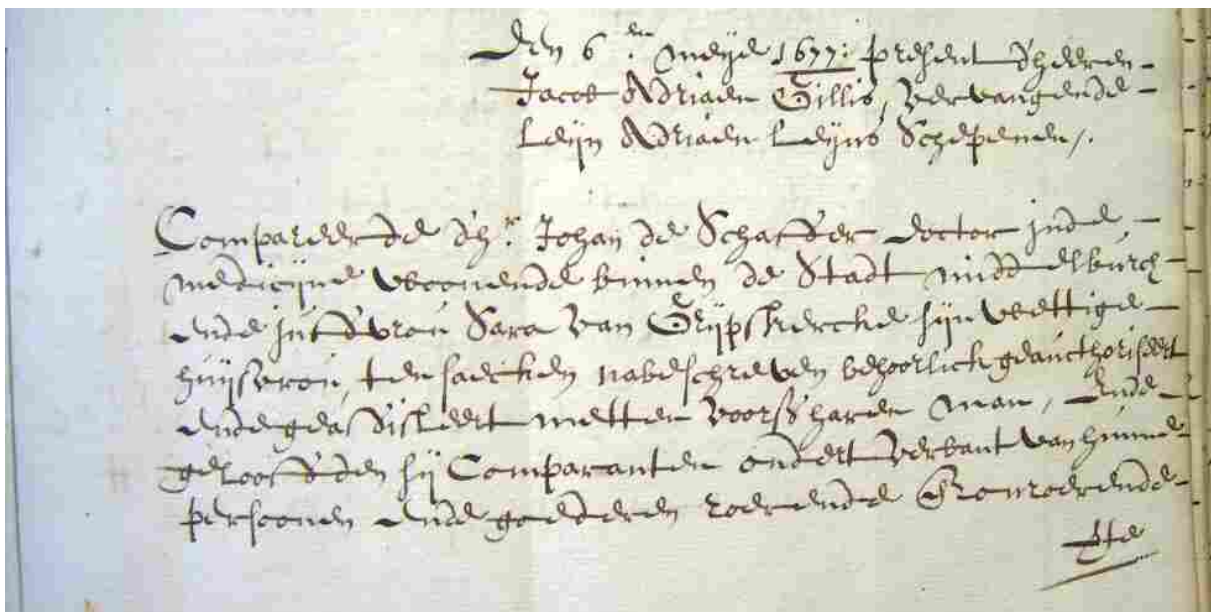 Den 6en meije 1677: present d'heeren
Jacob Adriaen Gillis, vervangende
Leijn Adriaen Leijns Schepenen /.
Compareerde d'hr. Johan de Schaffer doctor inde
medicijne woonende binnen de Stadt middelburch
ende juffvrou Sara van Grijpskercke sijn wettige
huijsvrou, ten saecken nabeschreven behoorlick geaucthoriseert
ende geassisteert metten voors. haren man, ende
geloofden sij Comparanten ondert verbant van hunne
persoonen ende goederen roerende & onroerende